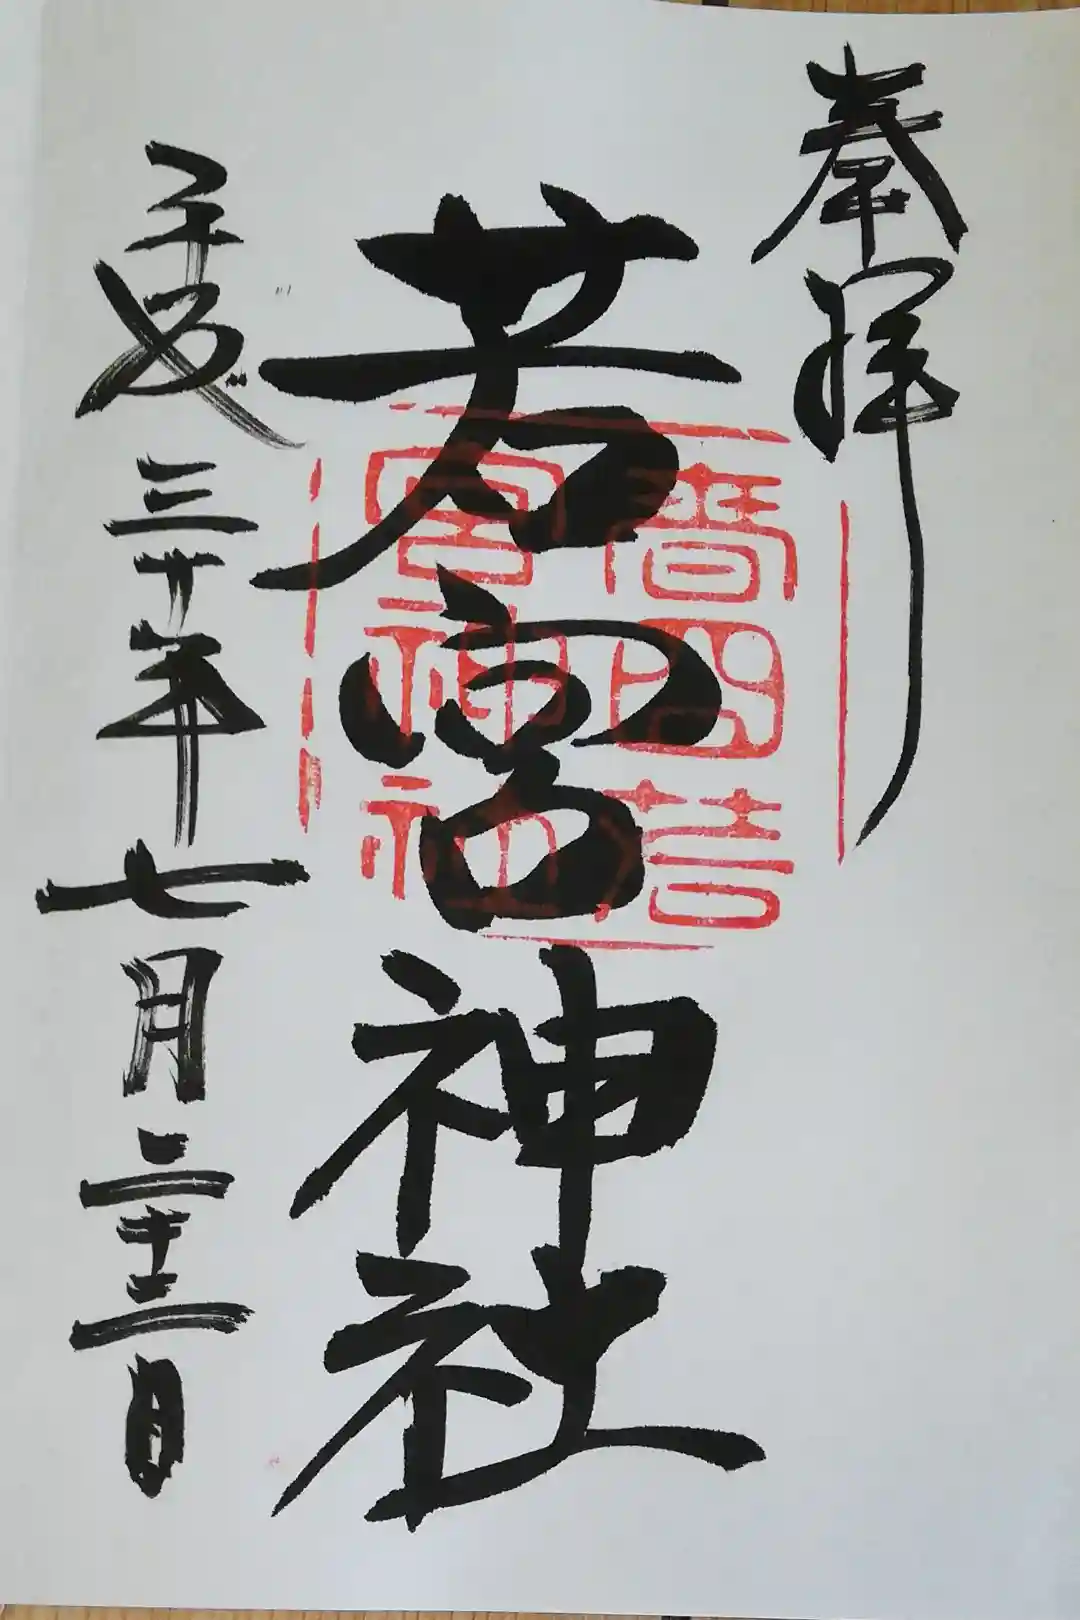 奉拝
若宮神社
四若
宮神社
平成三十年七月二十二日